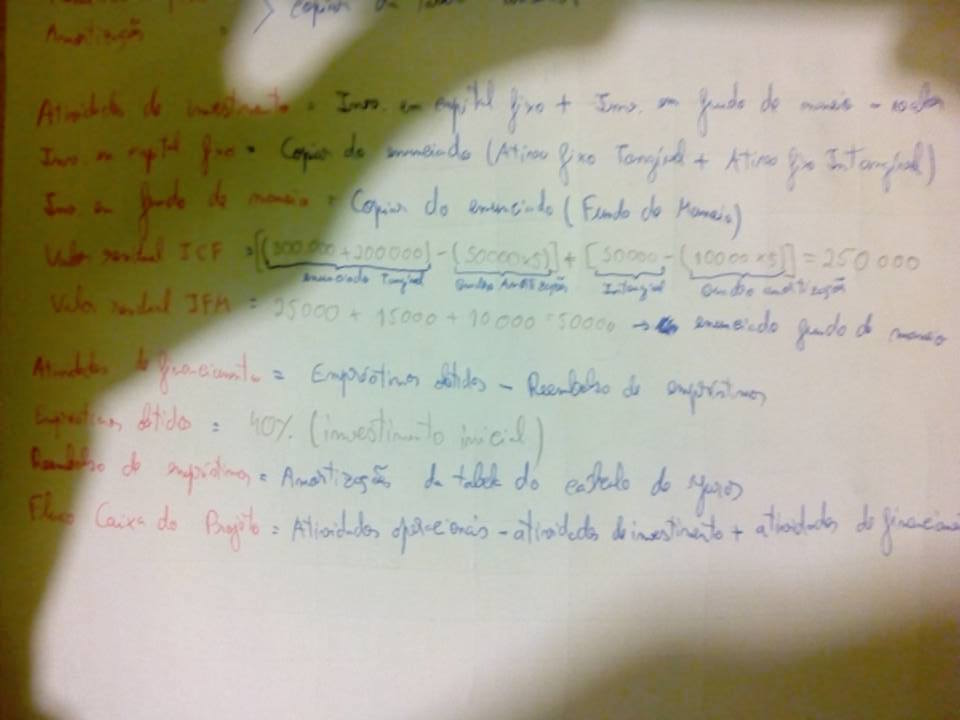 Copiar da
Amortização
Atividades de investimento = Inv. em capital fixo + Inv. em fundo de maneio -
Inv. em capital fixo = Copiar do enunciado (Ativo fixo Tangível + Ativo fixo Intangível)
Inv. em fundo de maneio = Copiar do enunciado (Fundo de Maneio)
Valor residual ICF = [(300.000 + 200000) - (50000x5)] + [50000 - (10000x5)] = 250 000
enunciado Tangível Quadro Amortização Intangível Quadro amortização
Valor residual IFM = 25000 + 15000 + 10 000 = 50000 → enunciado fundo de maneio
Atividades de financiamento = Empréstimos obtidos - Reembolso de empréstimos
Empréstimos obtidos = 40% (investimento inicial)
Reembolso de empréstimos = Amortização da tabela do calculo de juros
Fluxo Caixa do Projeto = Atividades operacionais - atividades de investimento + atividades de